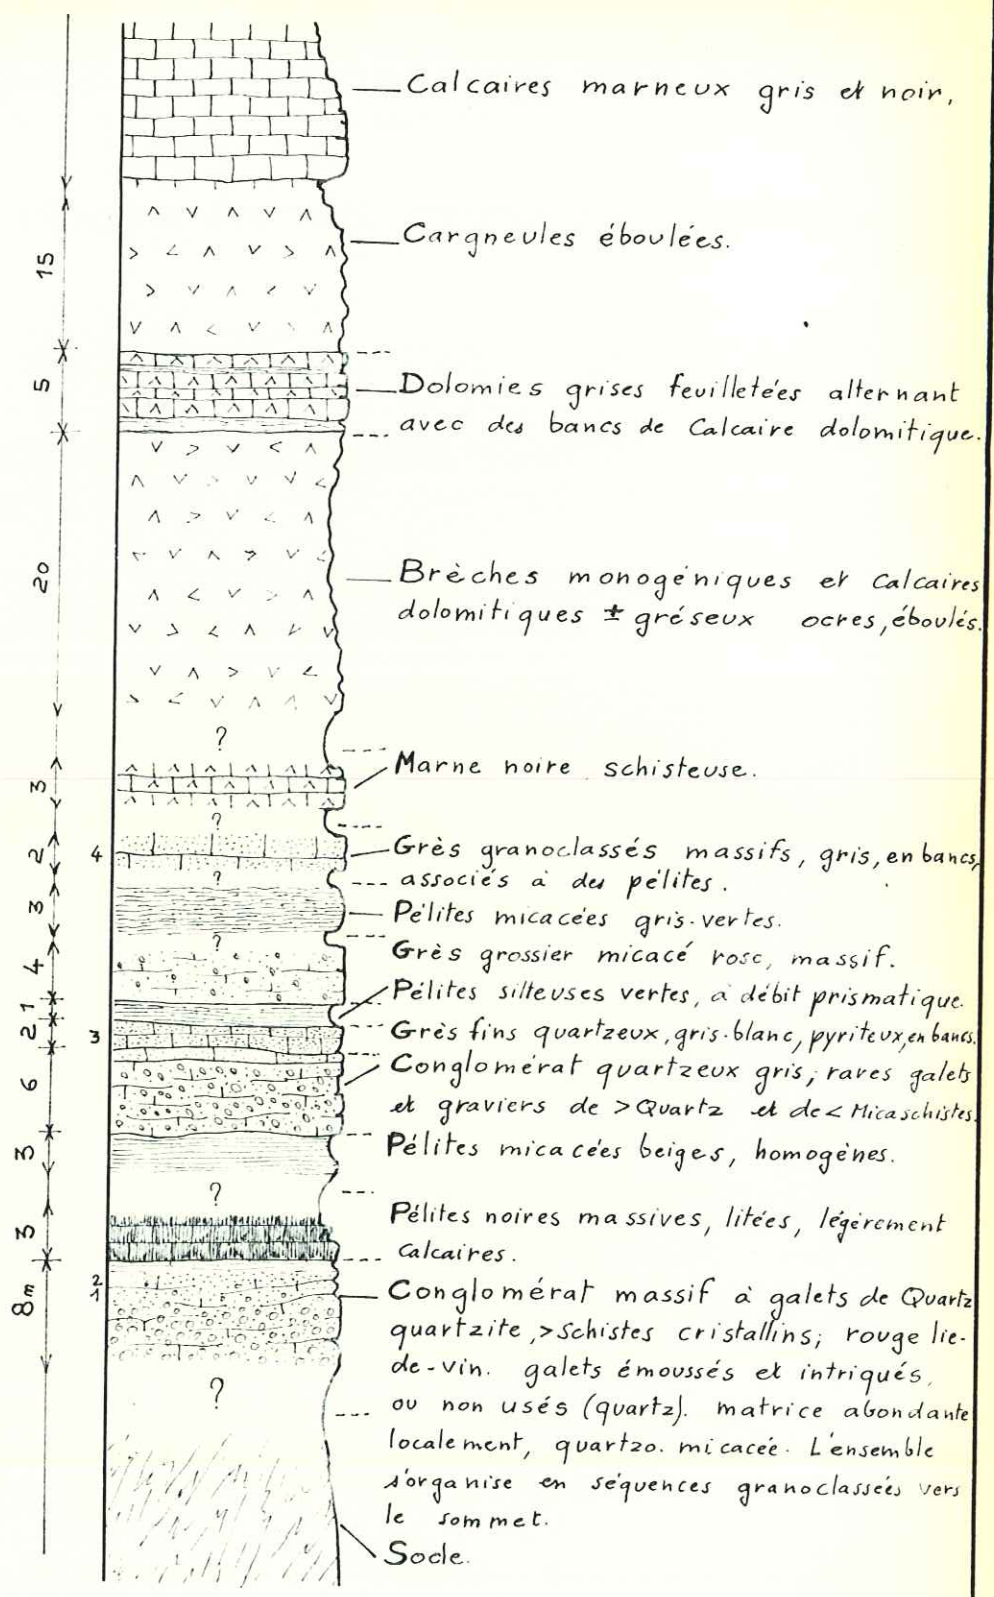 Calcaires marneux gris et noir,
15
Cargneules éboulées.
5
Dolomies grises feuilletées alternant
avec des bancs de Calcaire dolomitique.
20
Brèches monogéniques et Calcaires
dolomitiques ± gréseux ocres, éboulés.
?
3
Marne noire schisteuse.
?
2
4
Grès granoclassés massifs, gris, en bancs,
associés à des pélites.
?
3
Pélites micacées gris-vertes.
?
4
Grès grossier micacé rose, massif.
1
Pélites silteuses vertes, à débit prismatique.
2
3
Grès fins quartzeux, gris-blanc, pyriteux, en bancs.
6
Conglomérat quartzeux gris; rares galets
et graviers de > Quartz et de < Micaschistes.
3
Pélites micacées beiges, homogènes.
?
3
Pélites noires massives, litées, légèrement
Calcaires.
2
1
8m
Conglomérat massif à galets de Quartz
quartzite, > Schistes cristallins; rouge lie-
de-vin. galets émoussés et intriqués,
?
ou non usés (quartz). matrice abondante
localement, quartzo. micacée. L'ensemble
s'organise en séquences granoclassées vers
le sommet.
Socle.